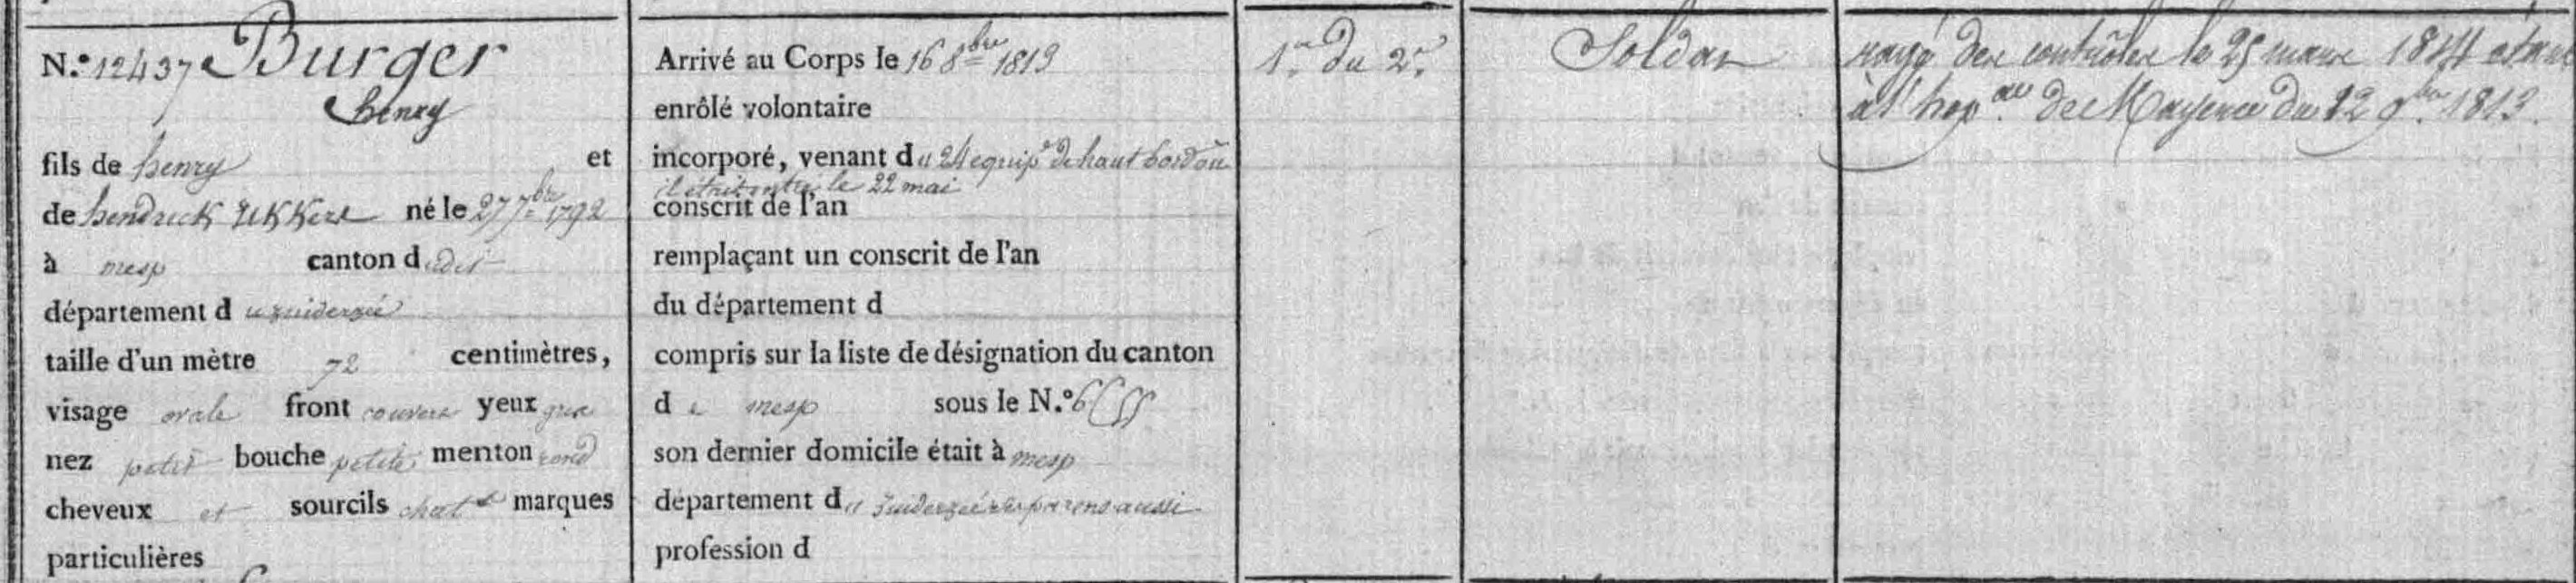 N.º 12437 Burger
henry
fils de henry et
de hendrick ukkers né le 27 7bre 1792
à mesp canton dudit
département du zuiderzée
taille d'un mètre 72 centimètres,
visage ovale front couvert yeux gris
nez petit bouche petite menton rond
cheveux et sourcils chat marques
particulières
Arrivé au Corps le 16 8bre 1813
enrôlé volontaire
incorporé, venant du 24 equipe de haut bord où
il étoit entré le 22 mai
conscrit de l'an
remplaçant un conscrit de l'an
du département d
compris sur la liste de désignation du canton
de mesp sous le N.º
son dernier domicile était à mesp
département du zuiderzée ses parens aussi
profession d
1er du 2e
Soldat
rayé des contrôles le 25 mars 1814 étant
à l'hopal de Mayence du 12 9bre 1813.